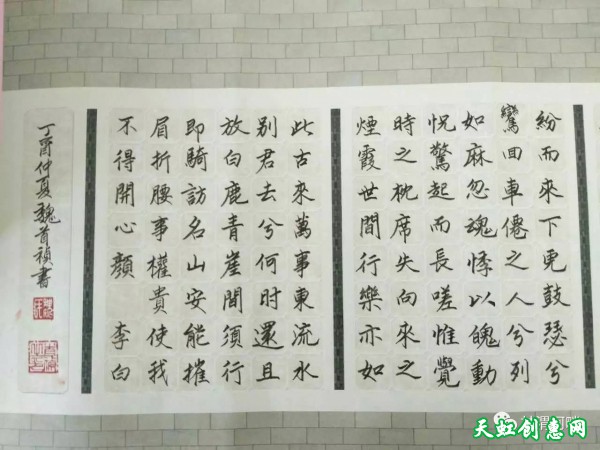 紛而來下虎鼓瑟兮
鸞回車僊之人兮列
如麻忽魂悸以魄動
怳驚起而長嗟惟覺
時之枕席失向來之
煙霞世間行樂亦如
此古來萬事東流水
別君去兮何时還且
放白鹿青崖間須行
即騎訪名山安能摧
眉折腰事權貴使我
不得開心顏 李白
丁酉仲夏魏首禎書
天虹创惠网